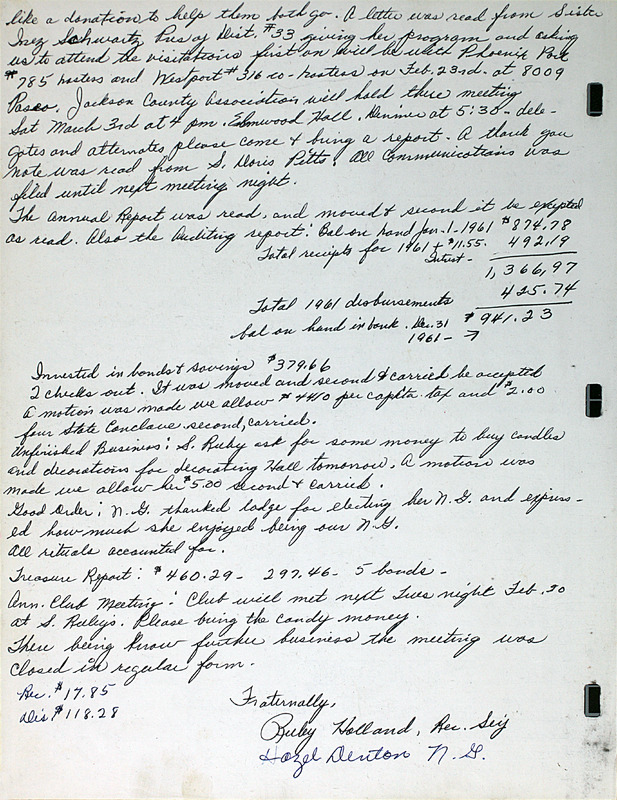 like a donation to help them both go. A letter was read from Sister
Inez Schwartz Pres of Dist. #33 giving her program and asking
us to attend the visitations first on will be with Phoenix Port
#785 hosters and Westport #316 co-hosters on Feb. 23rd. at 8009
Paseo. Jackson County Association will hold there meeting
Sat March 3rd at 4 pm. Elmwood Hall. Dinner at 5:30 - dele-
gates and alternates please come & bring a report. A thank you
note was read from S. Doris Pitts. All Communications was
filed until next meeting night.
The Annual Report was read, and moved & second it be excepted
as read. Also the Auditing report: Bal on hand Jan-1-1961 $874.78
Total receipts for 1961 + $11.55. 492.19
Intrest -
1,366,97
425.74
Total 1961 disbursements
bal on hand in bank. Dec. 31 $941.23
1961 - →
Invested in bonds & savings $379.66
2 checks out. It was moved and second & carried be accepted
A motion was made we allow $4410 per capita tax and $2.00
four State Conclave second, carried.
Unfinished Business: S. Ruby ask for some money to buy candles
and decorations for decorating Hall tomorrow. A motion was
made we allow her $5.00 second & carried.
Good Order: N.G. thanked lodge for electing her N.G. and express-
ed how much she enjoyed being our N.G.
All rituals accounted for.
Treasure Report: $460.29 - 297.46 - 5 bonds -
Ann. Club Meeting: Club will met next Tues night Feb. 20
at S. Ruby's. Please bring the candy money.
There being know further business the meeting was
closed in regular form.
Rec. $17.85
Dis $118.28
Fraternally,
Ruby Holland, Rec. Sey
Hazel Denton N.G.